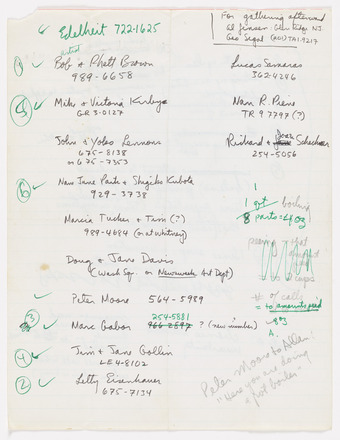 Edelheit 722-1625
For gathering afterward
Al Jensen - Glen Ridge, NJ
Geo Segal (201) TA1.9217
artist
Bob + Rhett Brown
989-6658
Lucas Samaras
362-4246
Mike + Victoria Kirby
GR 3-0127
Nam R. Piene
TR 97797 (?)
John + Yoko Lennon
675-8138
or 675-7353
Richard + Joan Schechner
254-5056
Nam June Paik + Shigeko Kubota
929-3738
Marcia Tucker + Tim (?)
989-4684 (or at Whitney)
1
1 qt boiling
8 parts = 4 oz
Doug + Jane Davis
(Wash Sq. or Newsweek Art Dept)
cups
Peter Moore 564-5989
# of
= to amounts
254-5881
Marc Gabor 966-2597 ? (new number)
8 oz
Jim + Jane Gollin
LE4-8102
Letty Eisenhauer
675-7134
Peter Moore to Allan:
"Here you are doing
a pot boiler"